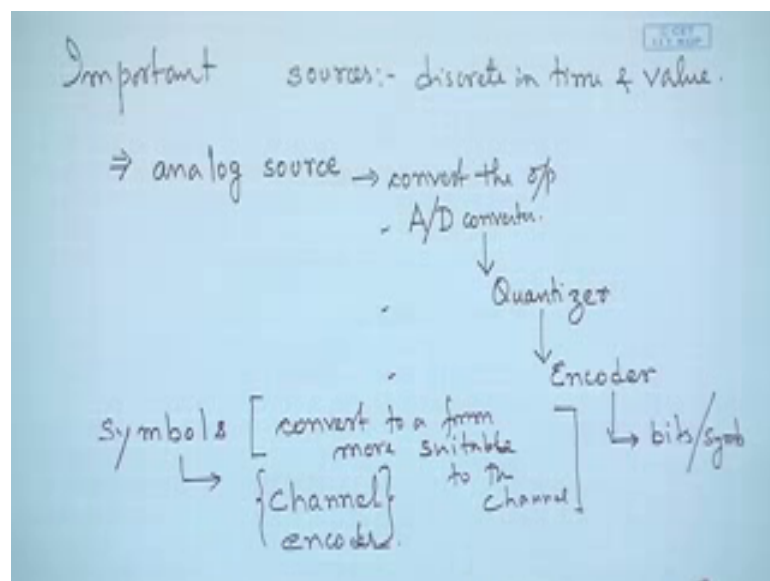 Important sources:- discrete in time & value.
⇒ analog source → convert the o/p
A/D converter.
Quantizer
Encoder
symbols [convert to a form → bits/symb
more suitable
to the
channel]
{channel}
encoder.